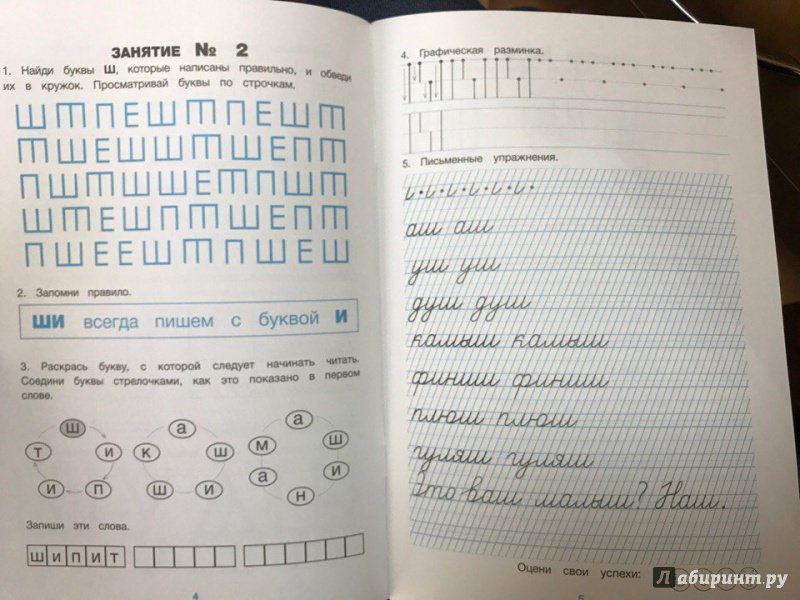 ЗАНЯТИЕ № 2
1. Найди буквы Ш, которые написаны правильно, и обведи
их в кружок. Просматривай буквы по строчкам.
Ш Т П Е Ш Т П Е Ш Т
Т Ш Е Ш Ш Т Ш Е П Т
П Ш Т Ш Ш Е Т П Ш Т
Ш Т Е Ш П Т Ш Е П Т
П Ш Е Е Ш Т П Ш Е Ш
2. Запомни правило.
ШИ всегда пишем с буквой И
3. Раскрась букву, с которой следует начинать читать.
Соедини буквы стрелочками, как это показано в первом
слове.
ш и п и т
а ш и ш к
а ш и н а м
Запиши эти слова.
ш и п и т
4
4. Графическая разминка.
5. Письменные упражнения.
аш аш
уш уш
душ душ
камыш камыш
финиш финиш
плюш плюш
гуляш гуляш
Это ваш малыш? Наш.
Оцени свои успехи:
5
Лабиринт.ру